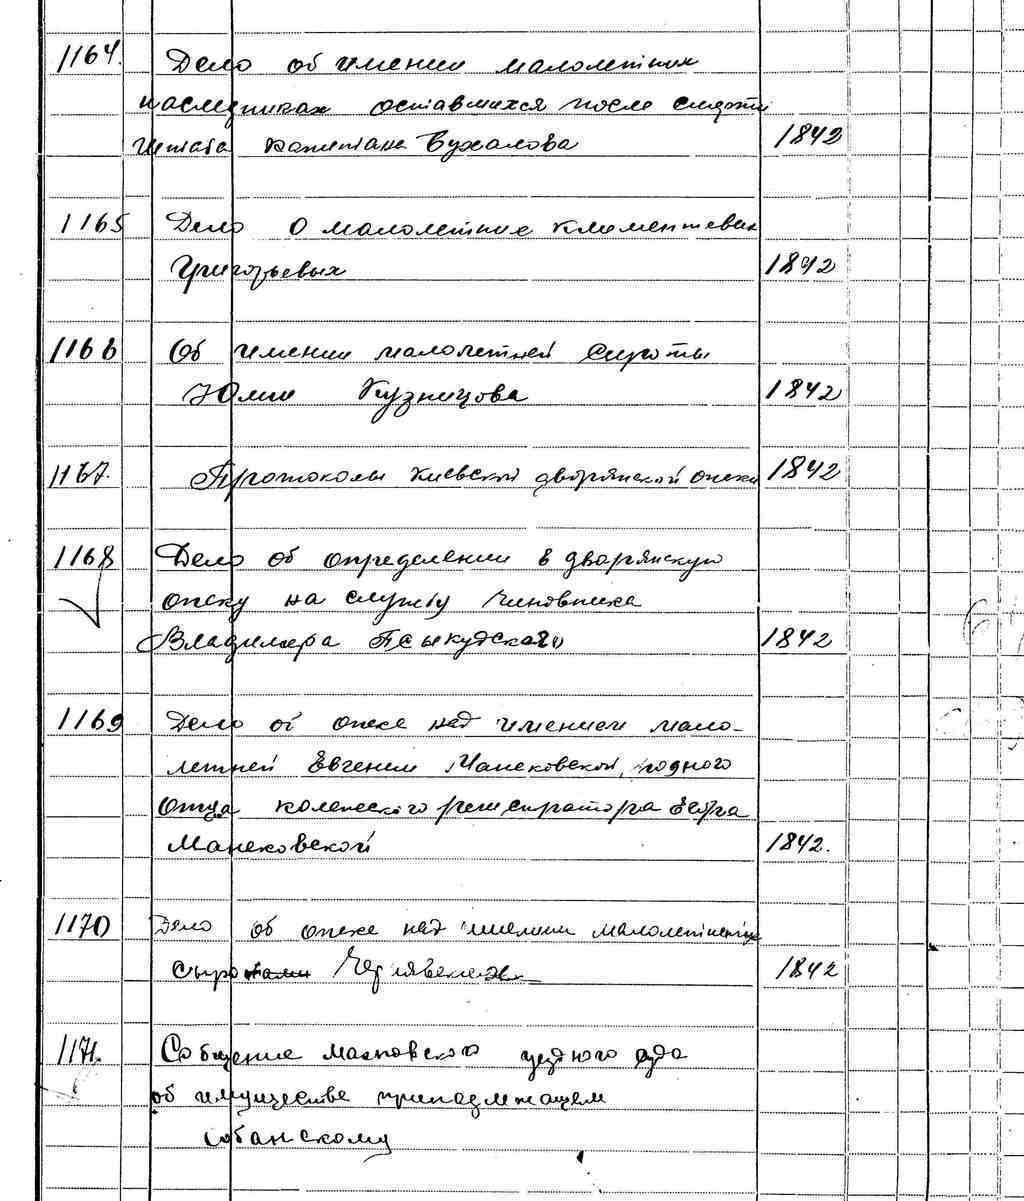 1164. Дело об имении малолетних
наследниках оставшихся после смерти
штабс капитана Бухалова 1842
1165 Дело о малолетние Климентевых
Григорьевых 1842
1166 Об имении малолетней сироты
Юлии Кузницова 1842
1167. Протоколы Киевской дворянской опеки 1842
1168 Дело об определении в дворянскую
опеку на службу чиновника
Владимера 1842
1169 Дело об опеке над имением мало-
летней Евгении Маньковской, родного
отца колежского регистратора Егора
Маньковской 1842.
1170 Дело об опеке над имением малолетними
сыротами 1842
1171. Сообщение Махновского уездного суда
об имуществе принадлежащем
Собанскому